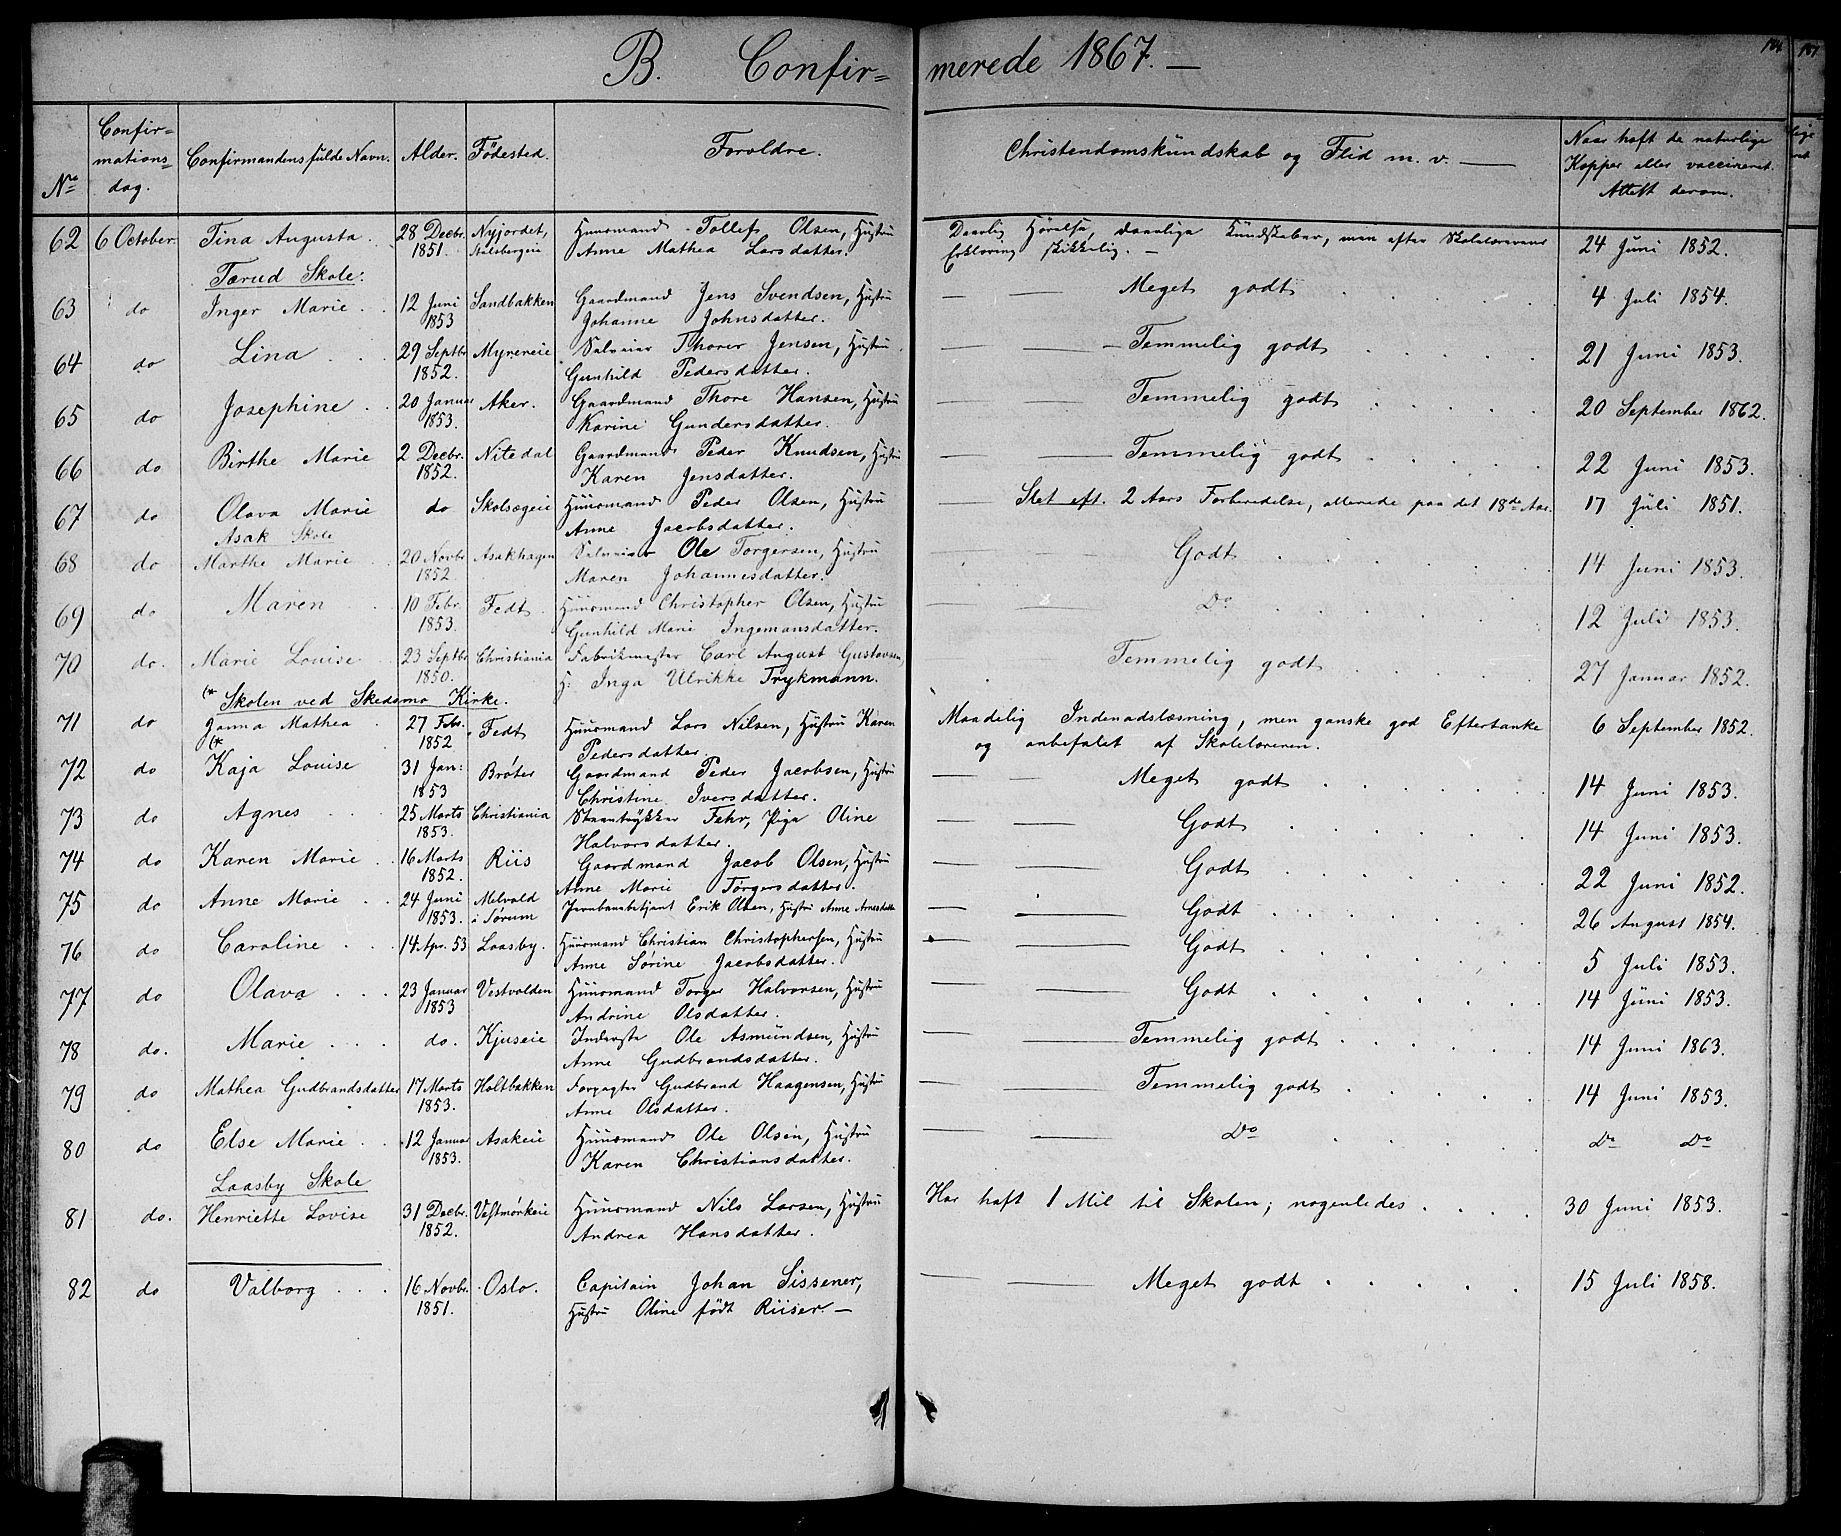 B. Confir= merede 1867. —
No
Confir=
mations=
dag.
Confirmandens fulde Navn.
Alder.
Fødested.
Forældre.
Christendomskundskab og Flid m. v. —
Naar haft de naturlige
Kopper eller vaccineret.
Attest derom.
62 6 October. Tina Augusta . 28 Decbr. 1851. Nyjordet, Stalsbergeie Huusmand Tollef Olsen, Hustru
Anne Mathea Larsdatter. Daarlig Hørelse, daarlige Kundskaber, men efter Skolelærerens
Erklæring skikkelig. — 24 Juni 1852.
Tærud Skole:
63 do Inger Marie . . 12 Juni 1853 Sandbakken Gaardmand Jens Svendsen, Hustru
Johanne Johnsdatter. — — Meget godt . . . . 4 Juli 1854.
64 do Lina . . . 29 Septbr 1852. Myrereie Selveier Thorer Jensen, Hustru
Gunhild Pedersdatter. — — Temmelig godt . . . . 21 Juni 1853.
65 do Josephine . . 20 Januar 1853. Aker. Gaardmand Thore Hansen, Hustru
Karine Gundersdatter. — — Temmelig godt . . . . 20 September 1862.
66 do Birthe Marie 2 Decbr. 1852. Nitedal Gaardmand Peder Knudsen, Hustru
Karen Jensdatter. — — Temmelig godt . . . . 22 Juni 1853.
67 do Olava Marie do Skolsegeie Huusmand Peder Olsen, Hustru
Anne Jacobsdatter. — Slet eft. 2 Aars Forberedelse, allerede paa det 18de Aar. 17 Juli 1851.
Asak Skole
68 do Marthe Marie . . 20 Novbr 1852 Asakhagen Selveier Ole Torgersen, Hustru
Maren Johannesdatter. — — Godt . . . . 14 Juni 1853.
69 do Maren . . 10 Febr. 1853. Fedt. Huusmand Christopher Olsen, Hustru
Gunhild Marie Ingemansdatter. — — Do . . . . 12 Juli 1853.
70 do. Marie Louise . 23 Septbr 1850. Christiania Fabrikmester Carl August Gustavsen,
H: Inga Ulrikke Trykmann. . Temmelig godt . . . . 27 Januar 1852.
(* Skolen ved Skedsmo Kirke.
71 do Janna Mathea . 27 Febr. 1852 Fedt Huusmand Lars Nilsen, Hustru Karen
Pedersdatter. Maadelig Indenadslæsning, men ganske god Eftertanke
og anbefalet af Skolelæreren. 6 September 1852.
(*
72 do Kaja Louise 31 Jan: 1853 Brøter Gaardmand Peder Jacobsen, Hustru
Christine Iversdatter. — — Meget godt . . . . 14 Juni 1853.
73 do Agnes . . . 25 Marts 1853. Christiania Steentrykker Fehr, Pige Oline
Halvorsdatter. — — Godt . . . . 14 Juni 1853.
74 do Karen Marie . . 16 Marts 1852. Riis Gaardmand Jacob Olsen, Hustru
Anne Marie Torgersdatter. — — Godt . . . . 22 Juni 1852.
75 do Anne Marie . . 24 Juni 1853. Melvold i Sørum Jernbanebetjent Erik Olsen, Hustru Anne Arnesdatter — — Godt . . . . 26 August 1854.
76 do Caroline . . . 14 Apr. 53 Laasby. Huusmand Christian Christophersen, Hustru
Anne Sørine Jacobsdatter. — — Godt . . . . 5 Juli 1853.
77 do Olava . . . 23 Januar 1853 Vestvolden Huusmand Torger Halvorsen, Hustru
Andrine Olsdatter. — — Godt . . . . 14 Juni 1853.
78 do. Marie . . . do. Kjuseie Inderste Ole Asmundsen, Hustru
Anne Gudbrandsdatter. — — Temmelig godt . . . . 14 Juni 1863.
79 do Mathea Gudbrandsdatter 17 Marts 1853. Holtbakken Forpagter Gudbrand Haagensen, Hustru
Anne Olsdatter. — — Temmelig godt . . . . 14 Juni 1853.
80 do Else Marie . . 12 Januar 1853. Asakeie Huusmand Ole Olsen, Hustru
Karen Christiansdatter. — — Do . . . . Do Do
Laasby Skole
81 do. Henriette Lovise 31 Decbr. 1852. Vestmørkeie Huusmand Nils Larsen, Hustru
Andrea Hansdatter. Har haft 1 Mil til Skolen; nogenledes . . . . 30 Juni 1853.
82 do Valborg . . . 16 Novbr. 1851. Oslo. Capitain Johan Sissener,
Hustru Oline født Riiser. — — — Meget godt . . . . 15 Juli 1858.